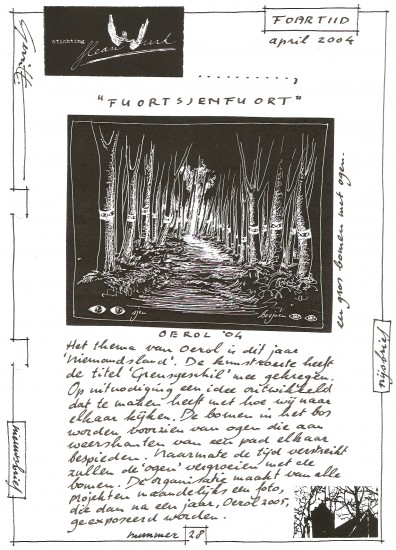 stichting
FOARTIID
april 2004
..........,
"FUORTSJENFUORT"
ogen
bespien
een gros bomen met ogen.
OEROL '04
Het thema van Oerol is dit jaar
'Niemandsland'. De kunstroute heeft
de titel 'Grensgeschil' mee gekregen.
Op uitnodiging een idee ontwikkeld
dat te maken heeft met hoe wij naar
elkaar kijken. De bomen in het bos
worden voorzien van ogen die aan
weerskanten van een pad elkaar
bespieden. Naarmate de tijd verstrijkt
zullen de 'ogen' vergroeien met de
bomen. De organisatie maakt van alle
projekten maandelijks een foto,
die dan na een jaar, Oerol 2005,
geëxposeerd worden.
nijsbrief
nieuwsbrief
nummer 28